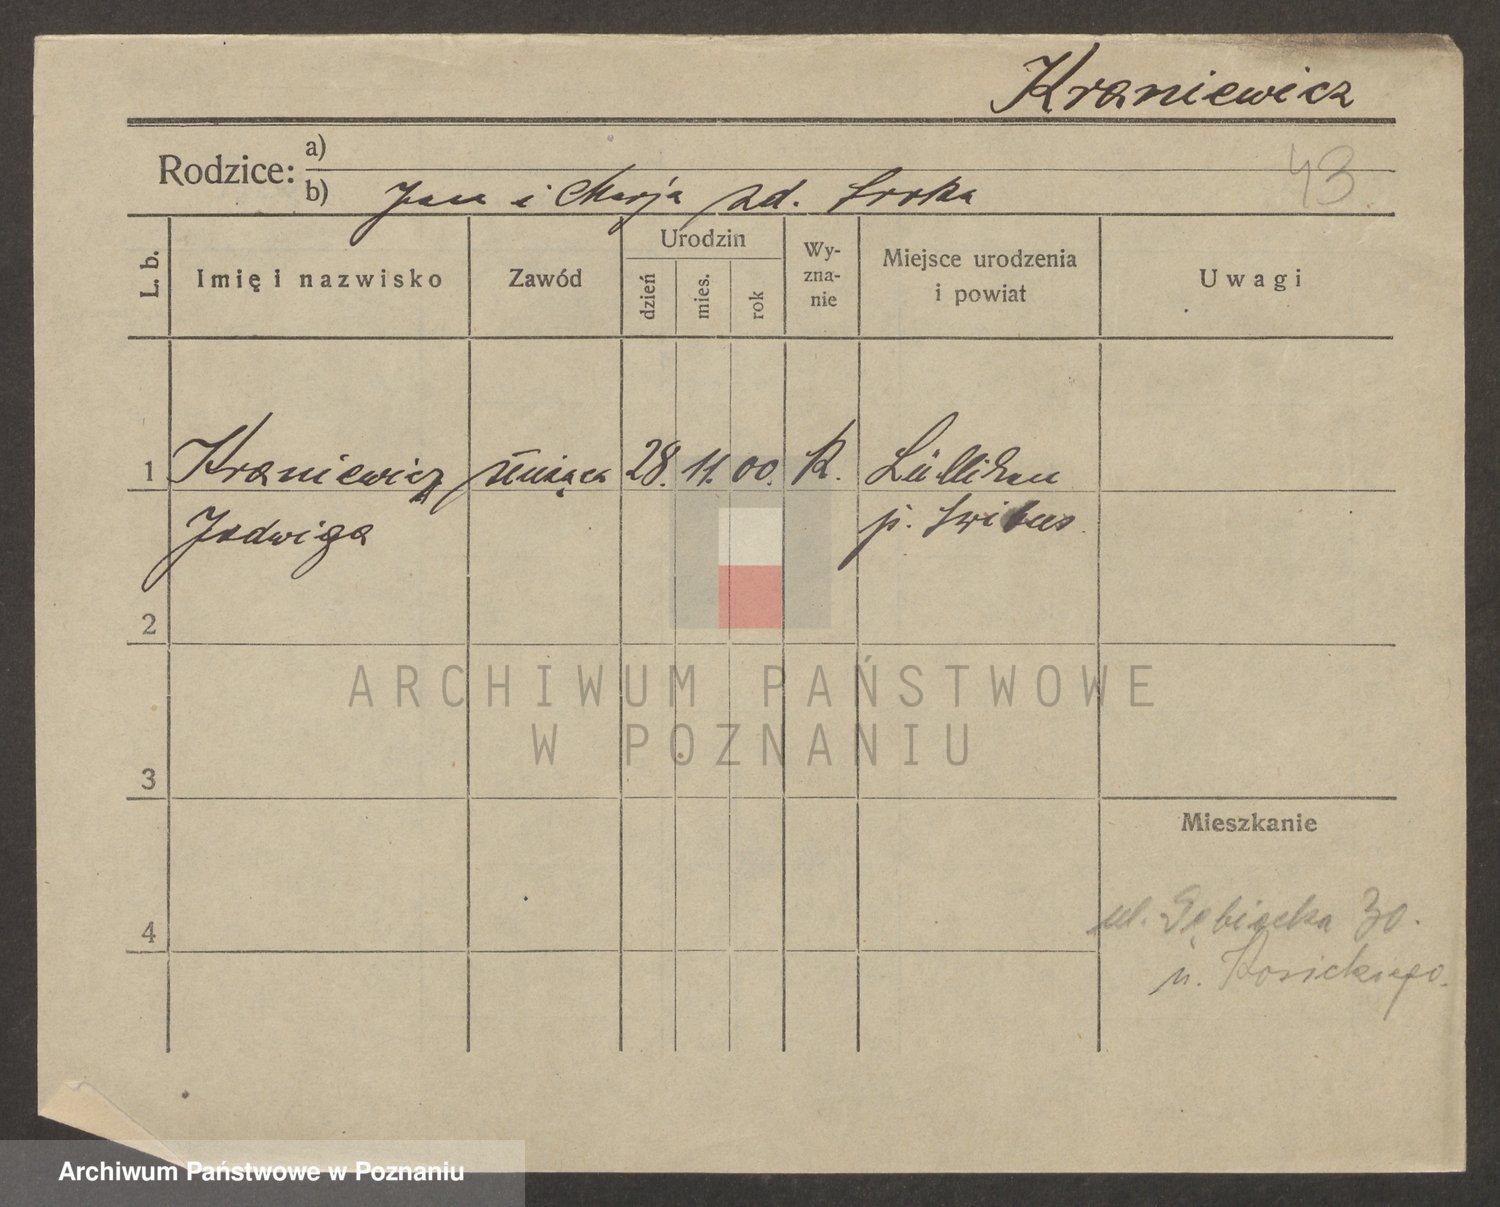 Kraniewicz
43
Rodzice: a)
b) Jan i Marja zd. Sroka
L. b. Imię i nazwisko Zawód Urodzin dzień mies. rok Wyznanie Miejsce urodzenia i powiat Uwagi
1 Kraniewicz służąca 28. 11. 00. K.
Jadwiga p.
2
ARCHIWUM PAŃSTWOWE
W POZNANIU
3
Mieszkanie
4 ul. 30.
u.
Archiwum Państwowe w Poznaniu